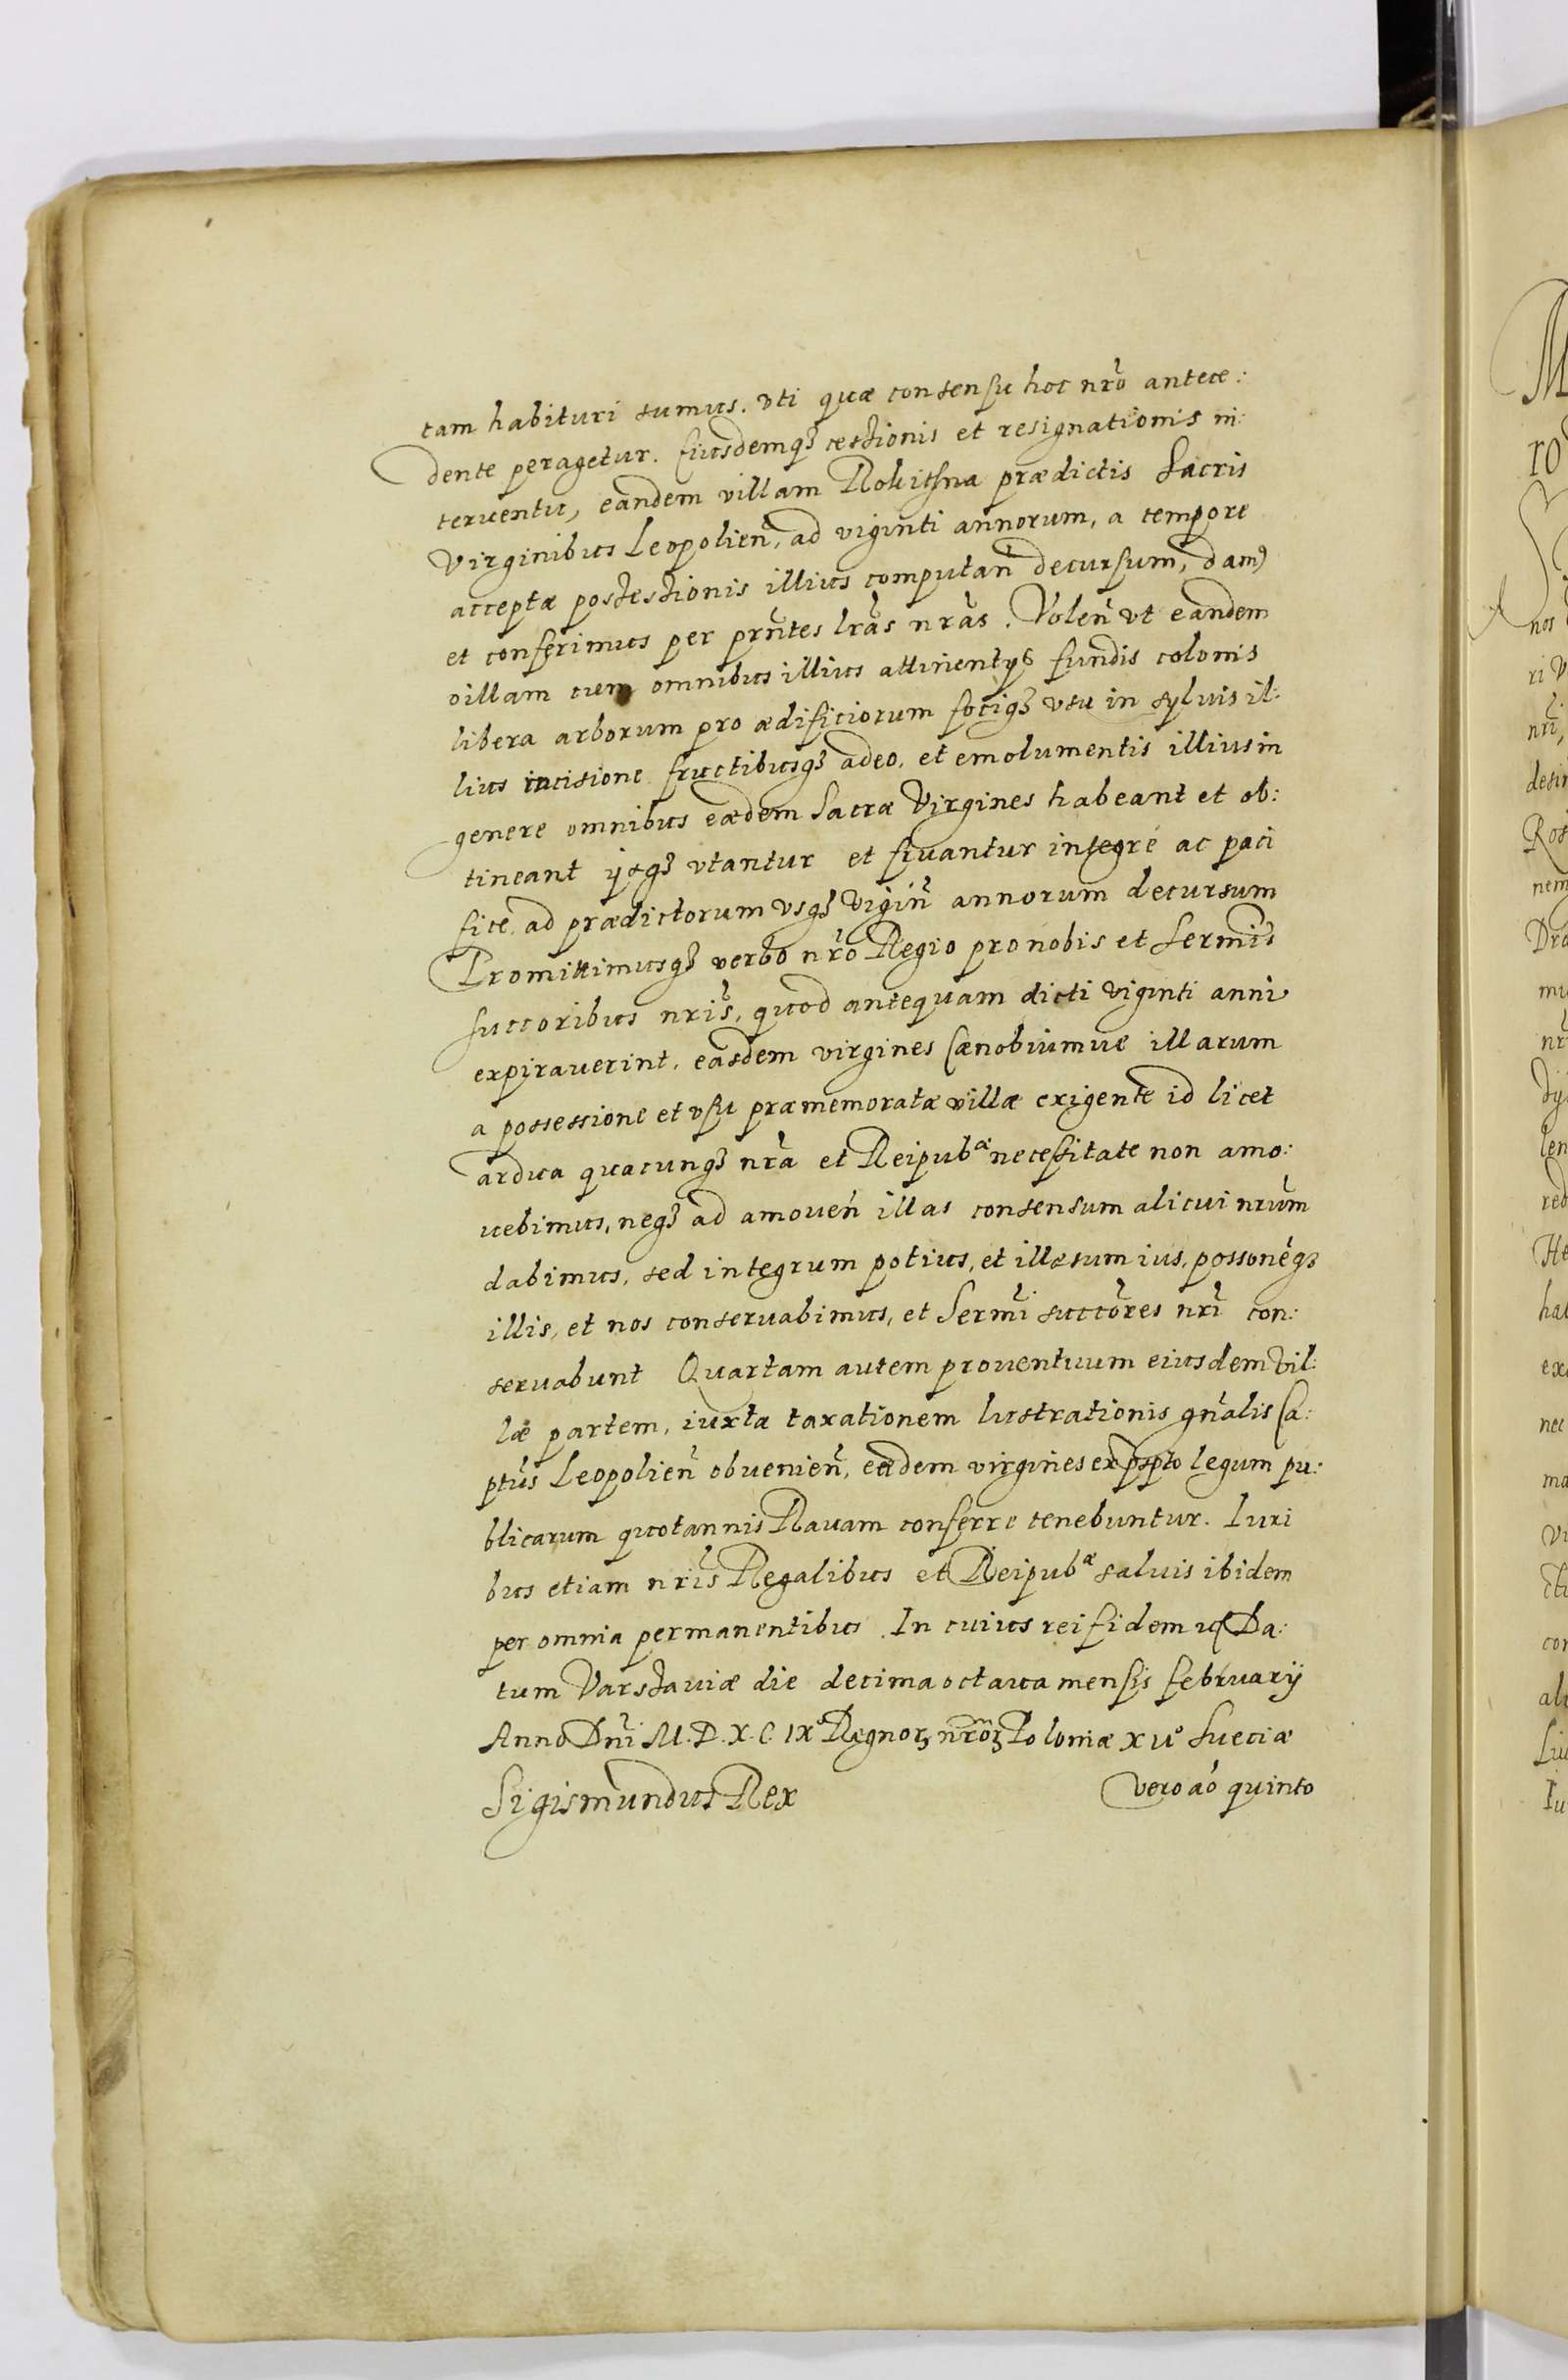 tam habituri sumus. vti quæ consensu hoc nrõ antece:
dente peragetur. Eiusdemqꝫ cessionis et resignationis in:
teruentu, eandem villam Rokithna prædictis Sacris
Virginibus Leopolien̄, ad viginti annorum, a tempore
acceptæ possessionis illius computan̄ decursum, damꝰ
et conferimus per prñtes lrãs nrãs. Volen̄ vt eandem
villam cum omnibus illius attinentÿs fundis colonis
libera arborum pro ædificiorum focíqꝫ vsu in syluis il:
lius incisione fructibusqꝫ adeo, et emolumentis illius in
genere omnibus eædem Sacræ Virgines habeant et ob:
tineant ÿsqꝫ vtantur et fruantur integré ac paci
ficé, ad prædictorum vsqꝫ vigin̄ annorum decursum
Promittimusqꝫ verbo nrõ Regio pro nobis et Sermĩs
succoribus nrĩs, quod antequam dicti viginti anni
expirauerint, easdem virgines Cænobiumue illarum
a possessione et vsu præmemoratæ villæ exigente id licet
ardua quacunqꝫ nrã et Reipubᵃᵉ necessitate non amo:
uebimus, neqꝫ ad amouen̄ illas consensum alicui nrũm
dabimus, sed integrum potius, et illæsum ius, possonéqꝫ
illis, et nos conseruabimus, et Sermĩ succõres nrĩ con:
seruabunt Quartam autem prouentuum eiusdem Vil:
læ partem, iuxta taxationem lustrationis gñralis Ca:
ptũs Leopolien̄ obuenien̄, eædem virgines ex pspto legum pu:
blicarum quotannis Rauam conferre tenebuntur. Iuri
bus etiam nrĩs Regalibus et Reipubᵃᵉ saluis ibidem
per omnia permanentibus. In cuius rei fidem Da:
tum Varsauiæ die decima octaua mensis februarÿ
Anno Dñi M.D.X.C.IXº Regnoꝝ nrõꝝ Poloniæ XIIº Sueciæ
Sigismundus Rex vero aó quinto